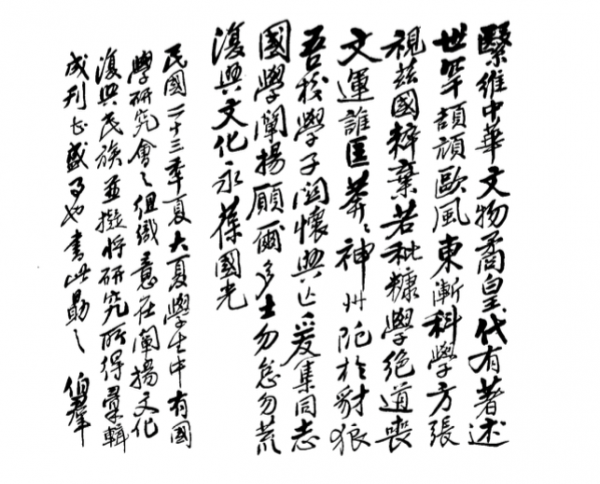 繄維中華文物矞皇代有著述
世罕頡頏歐風東漸科學方張
視茲國粹棄若秕糠學絕道喪
文運誰匡莽莽神州阨於豺狼
吾校學子關懷興亡爰集同志
國學闡揚願爾多士勿怠勿荒
復興文化永葆國光
民國二十三季夏大夏學生中有國
學研究會之組織意在闡揚文化
復興民族並擬將研究所得彙輯
成刊亦盛事也書此勗之 伯羣